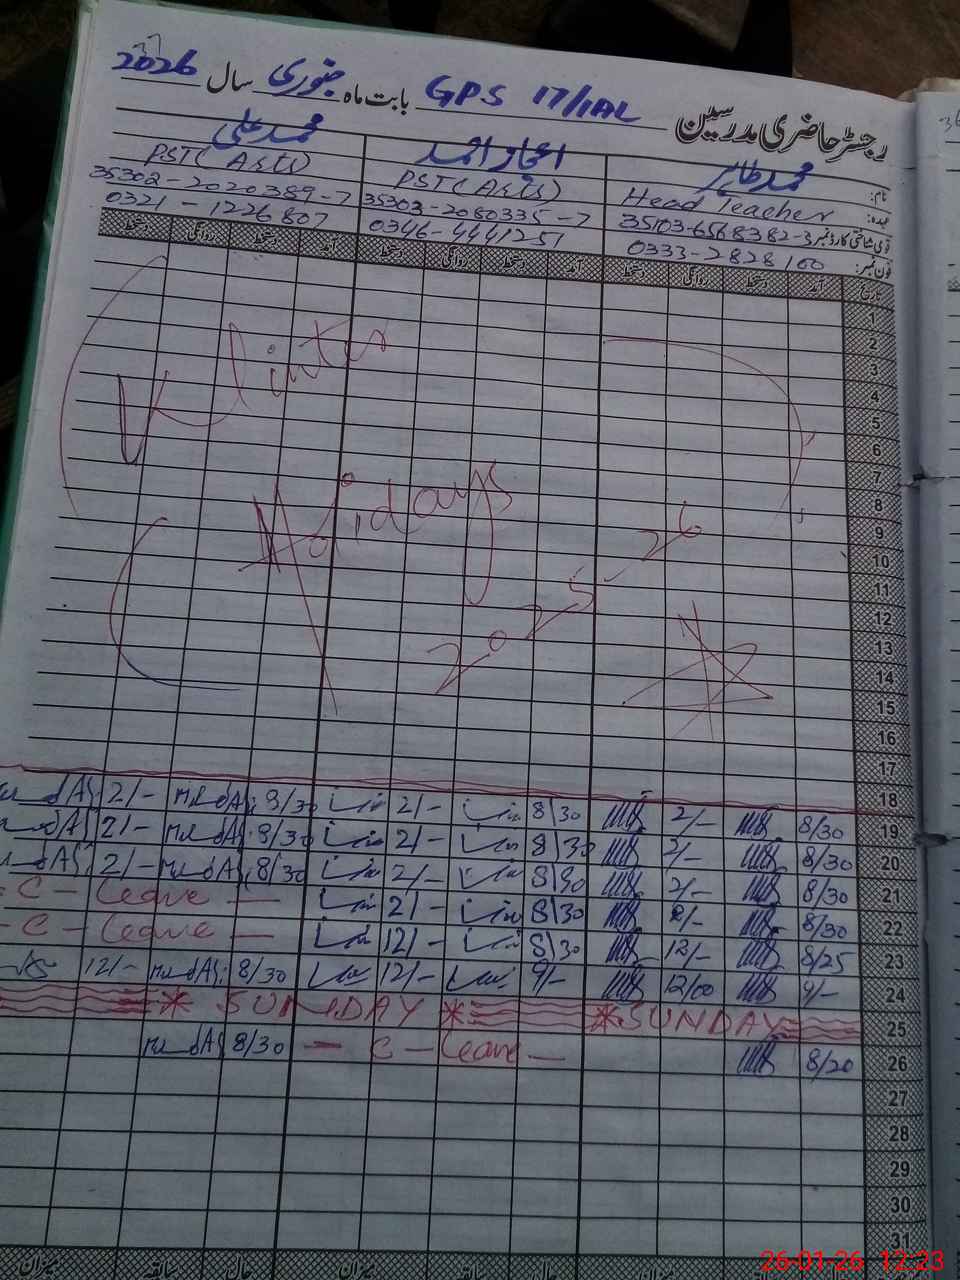 رجسٹر حاضری مدرسین GPS 17/1AL بابت ماہ جنوری سال 2026
نام: محمد طاہر اعجاز احمد محمد علی
عہدہ: Head Teacher PST (Arts) PST (Arts)
قومی شناختی کارڈ نمبر 35103-6568382-3 35303-2080335-7 35302-2020389-7
فون نمبر: 0333-2828160 0346-4441251 0321-1226807
تاریخ آمد دستخط روانگی دستخط آمد دستخط روانگی دستخط آمد دستخط روانگی دستخط
1
2
3
Winter
4
5
6
7
8
Holidays
9
10
2025-26
11
12
13
14
15
16
17
18
19 8/30 2/- 8/30 2/- 8/30 2/-
20 8/30 2/- 8/30 2/- 8/30 2/-
21 8/30 2/- 8/30 2/- 8/30 2/-
22 8/30 2/- 8/30 2/- - C - Leave -
23 8/25 12/- 8/30 12/- - C - Leave -
24 9/- 12/00 9/- 12/- 8/30 12/-
25 * SUNDAY * * SUNDAY
26 8/20 - C - Leave - 8/30
27
28
29
30
31
میزان سابقہ حالیہ میزان سابقہ
26-01-26 12:23